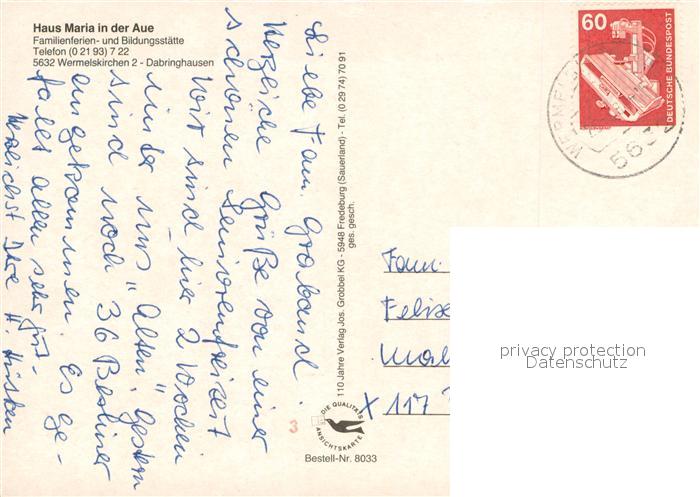 Haus Maria in der Aue
Familienferien- und Bildungsstätte
Telefon (0 21 93) 7 22
5632 Wermelskirchen 2 - Dabringhausen
Liebe Fam. Graband!
Herzliche Grüße von einer
schönen Seniorenfreizeit
Wir sind hier 2 Wochen
nur "Alten". Gestern
sind noch 36 Berliner
angekommen. Es ge-
fällt allen sehr gut.
Herzlichst Ihre H. Hüsken
110 Jahre Verlag Jos. Grobbel KG - 5948 Fredeburg (Sauerland) - Tel. (0 29 74) 70 91
ges. gesch.
60
DEUTSCHE BUNDESPOST
563
Fam.
Felix
X 117
privacy protection
Datenschutz
3
DIE QUALITÄTS
ANSICHTSKARTE
Bestell-Nr. 8033